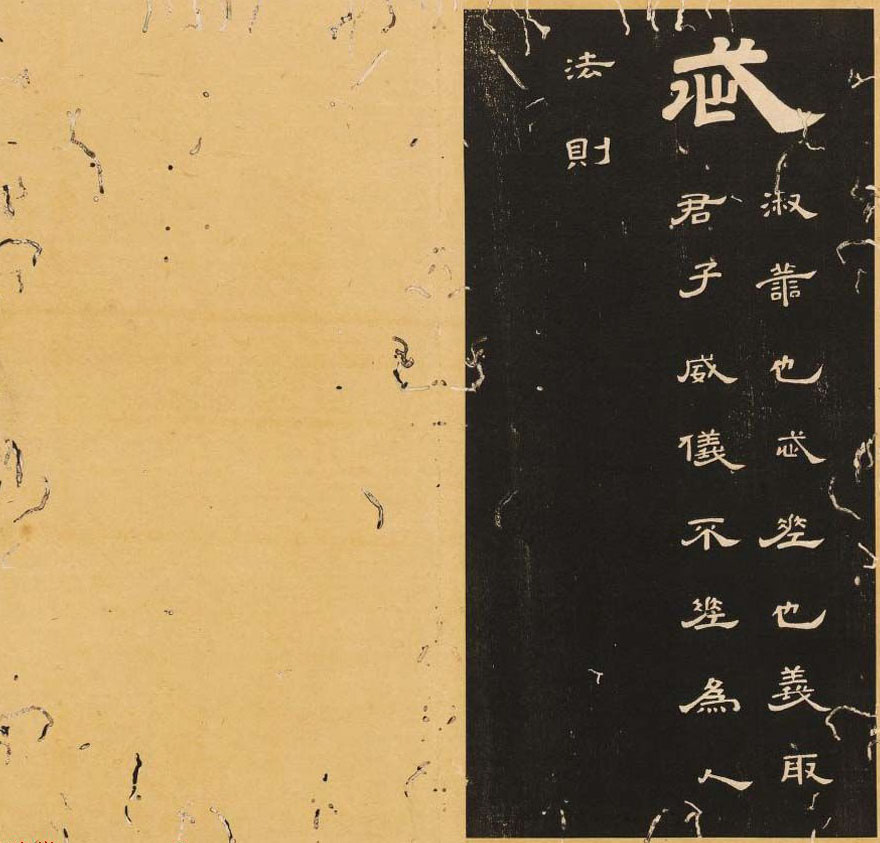 忒
淑譱也忒差也義取
君子威儀不差為人
法則